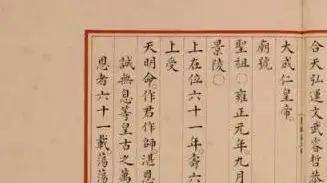 合天弘運文武睿哲恭
大成仁皇帝
廟號
聖祖○雍正元年九月
景陵○
上在位六十一年壽六
上受
天明命作君作師湛恩
誠無息等皇古之萬
恩者六十一載蕩蕩